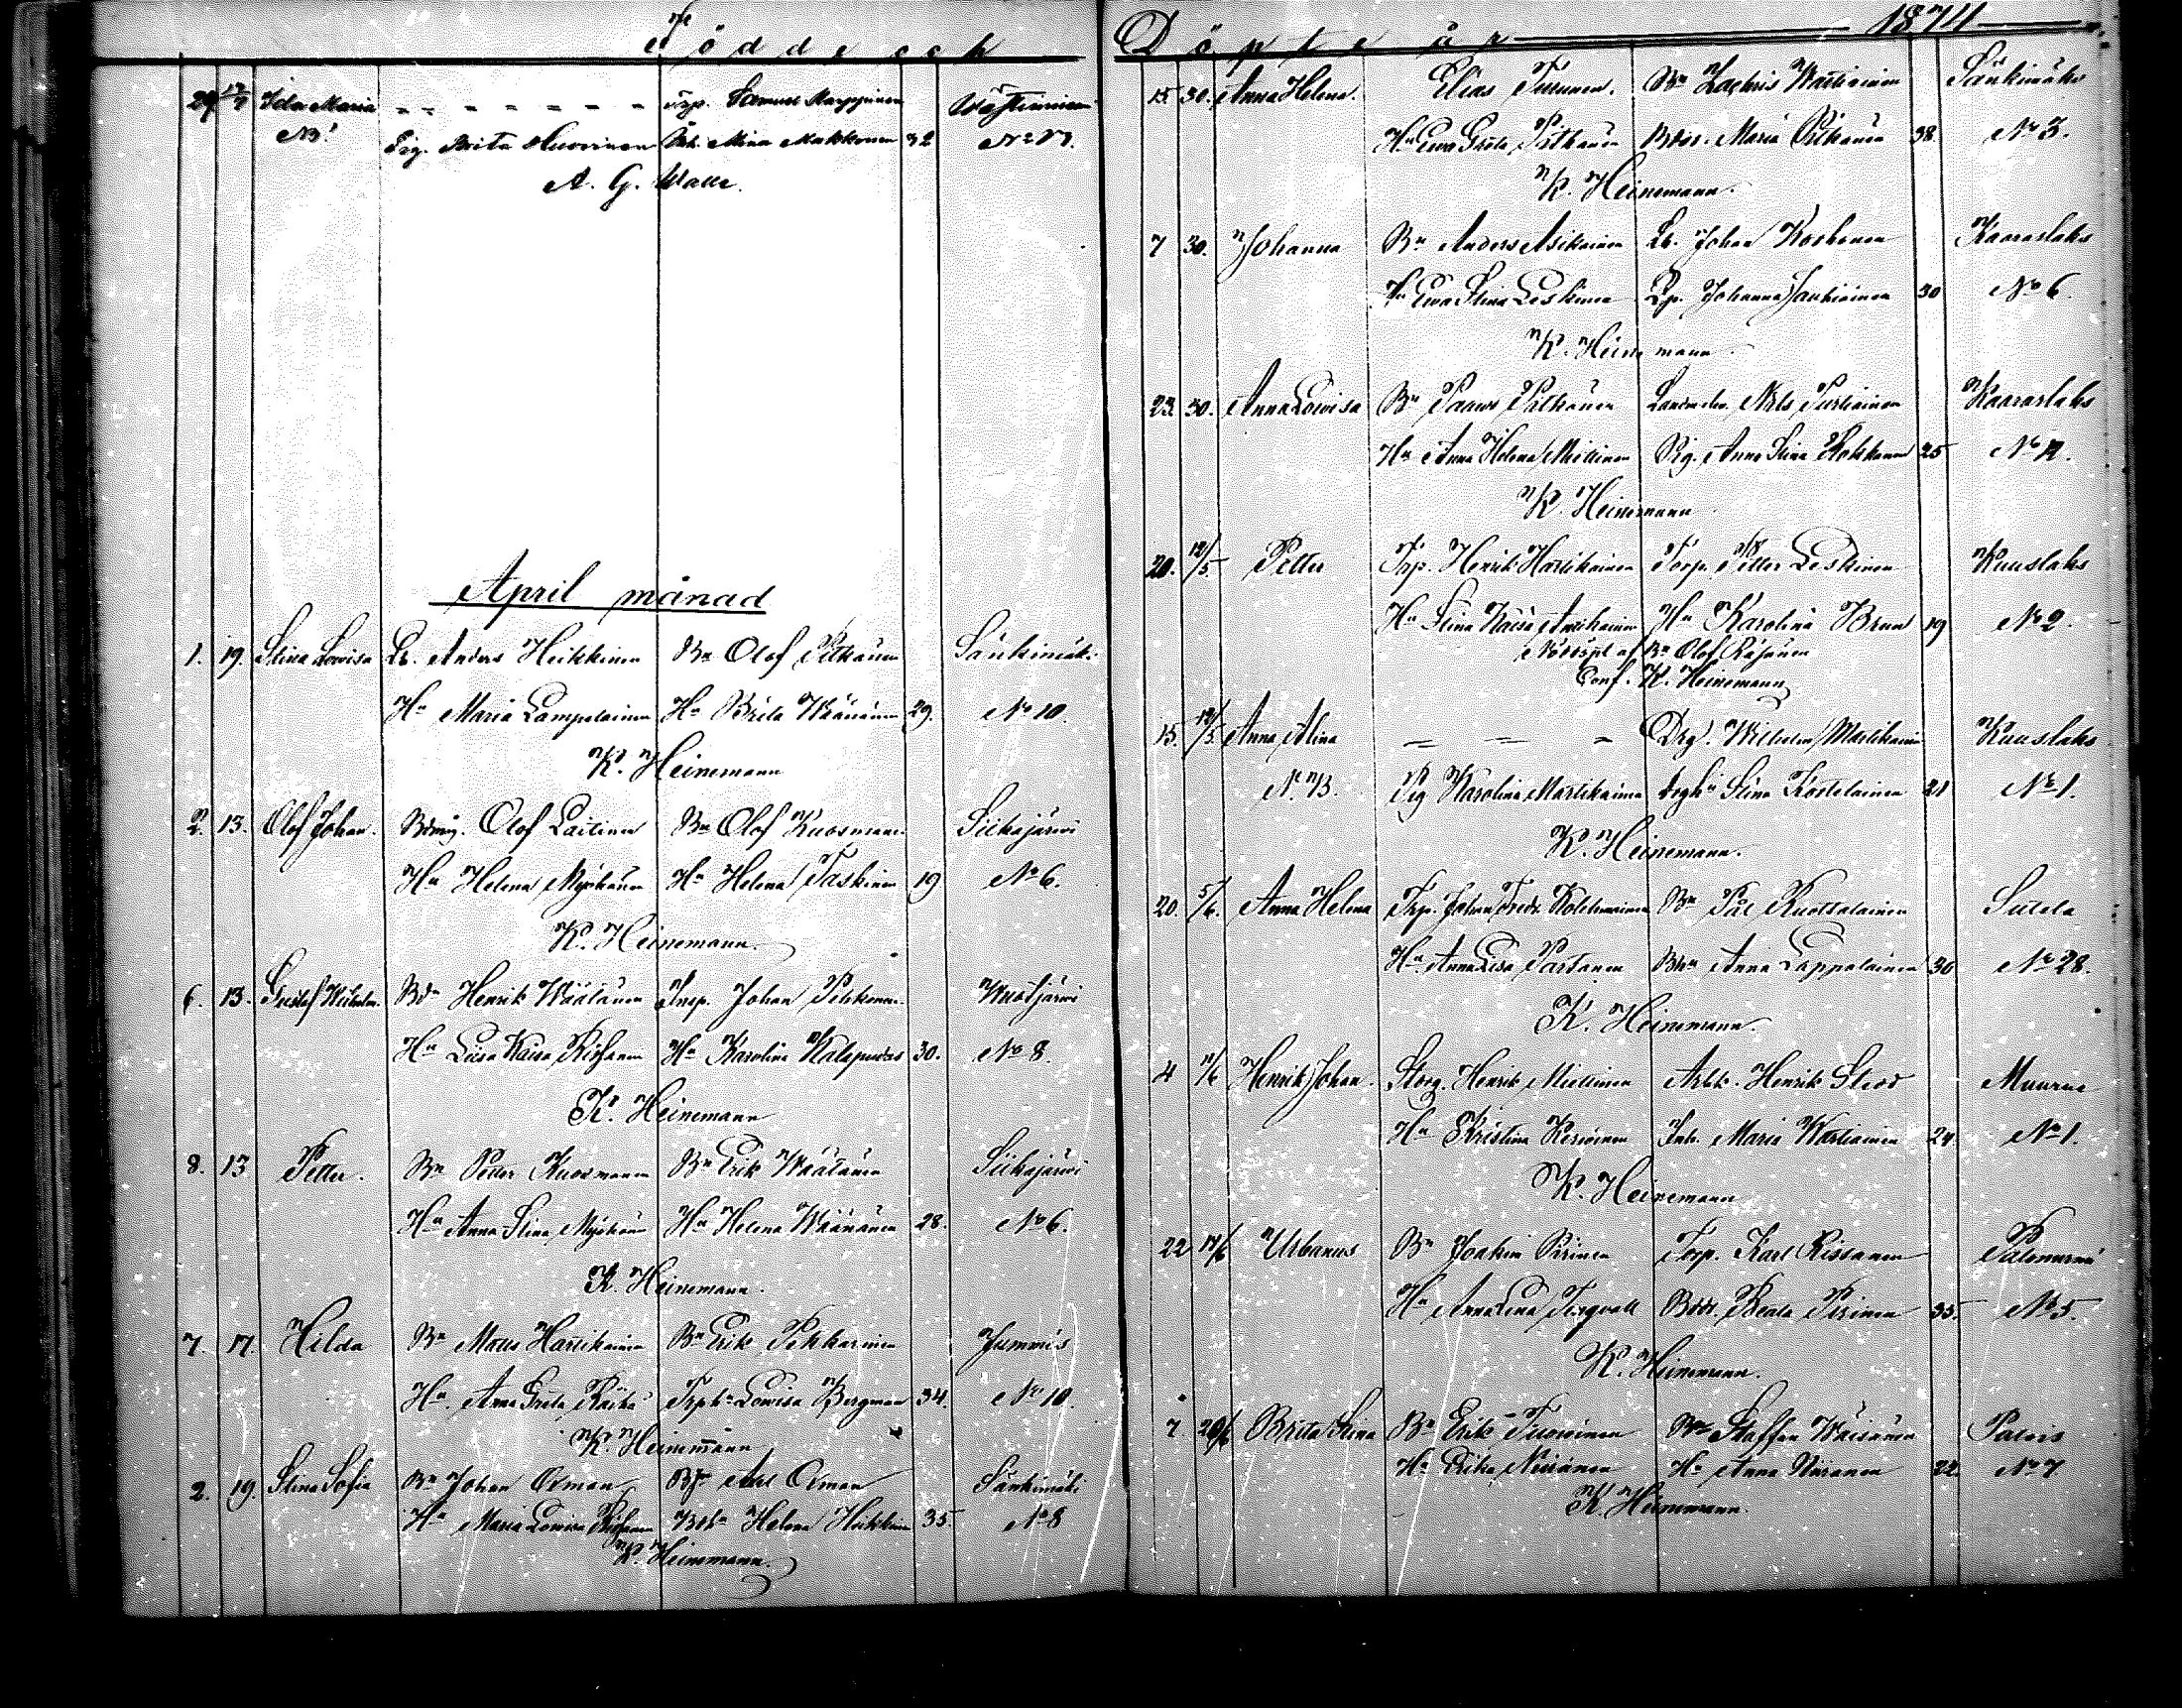 Födde och
29. 12/7 Ida Maria - - - - - - - Trp. Samuel Karppinen
NB! Pig. Brita Huovinen Inh. Mina Makkonen 32
A. G. Walle.
April månad
1. 19. Stina Lovisa Lb. Anders Heikkinen Bn Olof Pitkänen Sänkimäki
Hu Maria Lampelainen Hu Brita Wäänänen 29. No 10.
K. Heinemann
2. 13. Olof Johan. Bdmåg. Olof Laitinen Bn Olof Kuosmanen Siikajärwi
Hu Helena Mykkänen Hu Helena Taskinen 19 No 6.
K. Heinemann.
6. 13. Gustaf Wilhelm. Bdn Henrik Wäätänen Insp. Johan Pehkonen
Hu Liisa Kaisa Hu Karolina 30. No 8.
K. Heinemann
8. 13 Petter. Bn Petter Kuosmanen Bn Erik Wäätänen Siikajärwi
Hu Anna Stina Mykkänen Hu Helena Wäänänen 28. No 6.
K. Heinemann.
7. 17. Hilda Bn Matts Hartikainen Bn Erik Pekkarinen Jummis
Hu. Anna Greta Räihä Trphu Lowisa Bergman 34. No 10.
K. Heinemann
2. 19. Stina Sofia Bn Johan Öman Axel Öman Sänkimäki
Hu Maria Lowisa Helena Heikkinen 35. No 8
K. Heinemann.
Döpte år 1874
15. 30. Anna Helena. Elias Turunen. Bn Zachris Wartiainen Sänkimäki
Hu Ewa Greta Pitkänen Bdotr. Maria Pitkänen 38. No 3.
K. Heinemann.
7 30. Johanna Bn Anders Asikainen Lb. Johan Koskonen Kaaraslaks
Hu Ewa Stina Leskinen Lp. Johanna Jauhiainen 30 No 6.
K. Heinemann
23. 30. Anna Lowisa Bn Paavo Pitkänen Nils Turtiainen Kaaraslaks
Hu Anna Helena Miettinen Pig. Anna Stina 25
K. Heinemann
20. 12/5. Petter Trp. Henrik Hartikainen Torp. Petter Leskinen Kuuslaks
Hu Stina Kaisa Hu Karolina Brun 19 No 2.
Nöddöpt af Bn Olof Räsänen
Conf. K. Heinemann
15. 12/5 Anna Alina - - - Drg. Wilhelm Martikainen Kuuslaks
N.B. Pig Karolina Martikainen Drghu Stina 21 No 1.
K. Heinemann.
20. 5/6. Anna Helena Trp. Johan Fredr. Kolehmainen Bn Pål Ruotsalainen Sutela
Hu Anna Lisa Partanen Bhu Anna Lappalainen 30 No 28.
K. Heinemann.
4 11/6 Henrik Johan. Henrik Miettinen Arbk. Henrik Muuruu
Hu Kristina Kerwinen Inh. Maria Wartiainen 24 No 1.
K. Heinemann
22 14/6 Urbanus Bn Joakim Pirinen Torp. Karl Rissanen Palonurmi
Hu Anna Lena Bdotr. Beata Pirinen 35. No 5.
K. Heinemann.
7 20/6 Brita Stina Bn Erik Tuovinen Bn Staffan Wäisänen
Hu Erika Niiranen Hu Anna Niiranen 22. No 7
K. Heinemann.